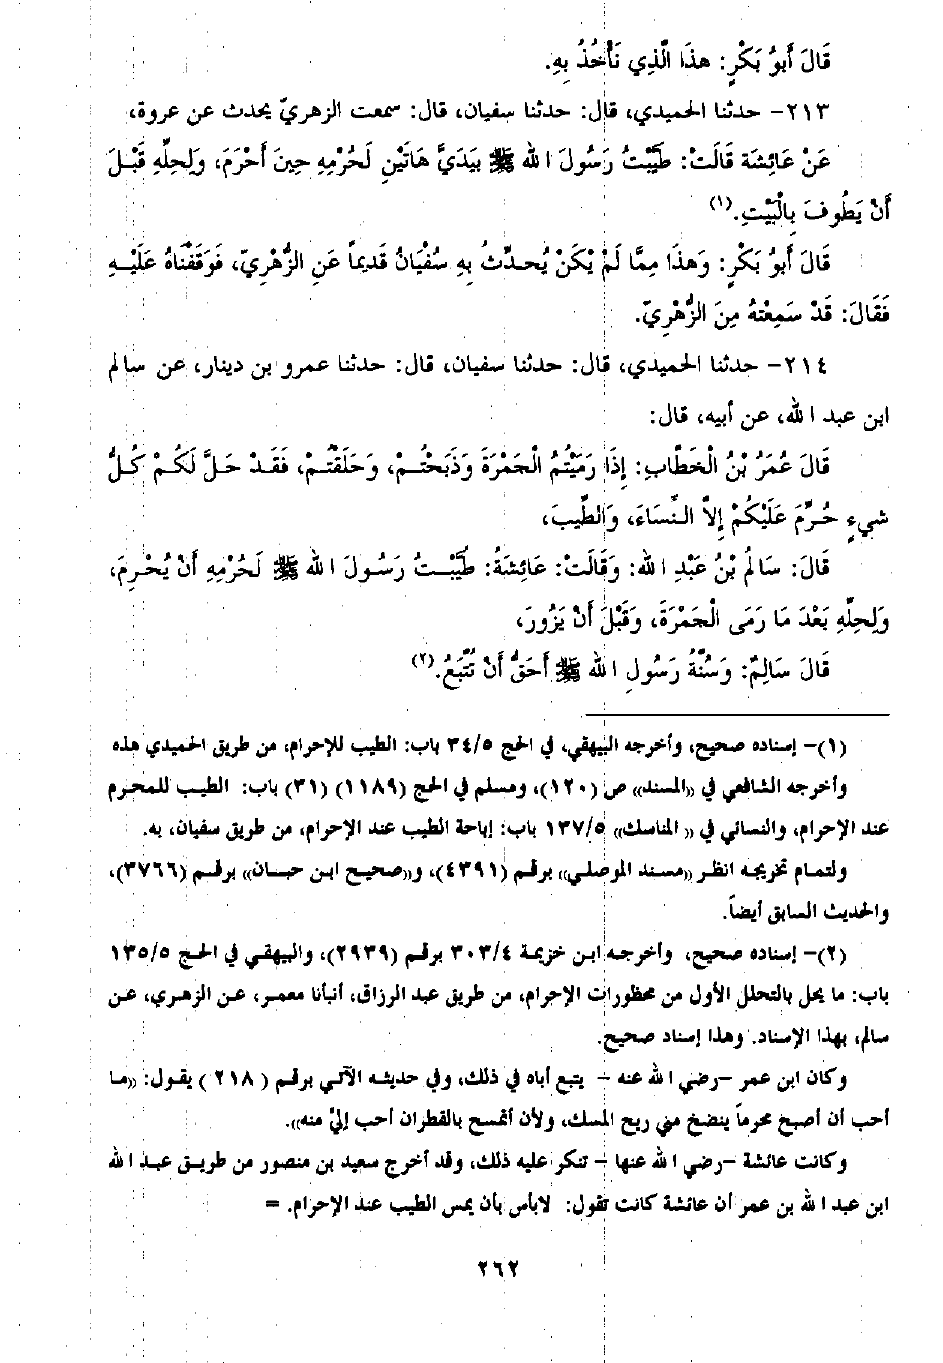 قَالَ أَبُو بَكْرٍ: هذَا الَّذِي نَأْخُذُ بِهِ.
٢١٣- حدثنا الحميدي، قال: حدثنا سفيان، قال: سمعت الزهريّ يحدث عن عروة،
عَنْ عَائِشَة قَالَتْ: طَيَّبْتُ رَسُولَ الله ﷺ بِيَدَيَّ هَاتَيْنِ لَحُرْمِهِ حِينَ أَحْرَمَ، وَلِحِلِّهِ قَبْلَ
أَنْ يَطُوفَ بِالْبَيْتِ.(١)
قَالَ أَبُو بَكْرٍ: وَهذَا مِمَّا لَمْ يَكُنْ يُحدِّثُ بِهِ سُفْيَانُ قَدِيماً عَنِ الزُّهْرِيّ، فَوَقَفْنَاهُ عَلَيْهِ
فَقَالَ: قَدْ سَمِعْتهُ مِنَ الزُّهْرِيّ.
٢١٤- حدثنا الحميدي، قال: حدثنا سفيان، قال: حدثنا عمرو بن دينار، عن سالم
ابن عبد الله، عن أبيه، قال:
قَالَ عُمَرُ بْنُ الْخَطَّابِ: إِذَا رَمَيْتُمُ الْجَمْرَةَ وَذَبَحْتُمْ، وَحَلَقْتُمْ، فَقَدْ حَلَّ لَكُمْ كُلُّ
شيءٍ حُرِّمَ عَلَيْكُمْ إِلاَّ النِّسَاءَ، وَالطِّيبَ،
قَالَ: سَالِمُ بْنُ عَبْدِ الله: وَقَالَتْ: عَائِشَةُ: طَيَّبْتُ رَسُولَ الله ﷺ لَحُرْمِهِ أَنْ يُحْرِمَ،
وَلِحِلِّهِ بَعْدَ مَا رَمَى الْجَمْرَةَ، وَقَبْلَ أَنْ يَزُورَ،
قَالَ سَالِمٌ: وَسُنَّةُ رَسُولِ الله ﷺ أَحَقُّ أَنْ تُتَّبَعُ.(٢)
(١)- إسناده صحيح، وأخرجه البيهقي، في الحج ٣٤/٥ باب: الطيب للإحرام، من طريق الحميدي هذه
وأخرجه الشافعي في «المسند» ص (١٢٠)، ومسلم في الحج (١١٨٩) (٣١) باب: الطيب للمحرم
عند الإحرام، والنسائي في « المناسك» ١٣٧/٥ باب: إباحة الطيب عند الإحرام، من طريق سفيان، به.
ولتمام تخريجه انظر «مسند الموصلي» برقم (٤٣٩١)، و«صحيح ابن حبان» برقم (٣٧٦٦)،
والحديث السابق أيضاً.
(٢)- إسناده صحيح، وأخرجه ابن خزيمة ٣٠٣/٤ برقم (٢٩٣٩)، والبيهقي في الحج ١٣٥/٥
باب: ما يحل بالتحلل الأول من محظورات الإحرام، من طريق عبد الرزاق، أنبأنا معمر، عن الزهري، عن
سالم، بهذا الإسناد. وهذا إسناد صحيح.
وكان ابن عمر -رضي الله عنه - يتبع أباه في ذلك، وفي حديثه الآتي برقم ( ٢١٨ ) يقول: «ما
أحب أن أصبح محرماً ينضخ مني ريح المسك، ولأن أتمسح بالقطران أحب إليَّ منه».
وكانت عائشة -رضي الله عنها - تنكر عليه ذلك، وقد أخرج سعيد بن منصور من طريق عبد الله
ابن عبد الله بن عمر أن عائشة كانت تقول: لابأس بأن يمس الطيب عند الإحرام. =
٢٦٢